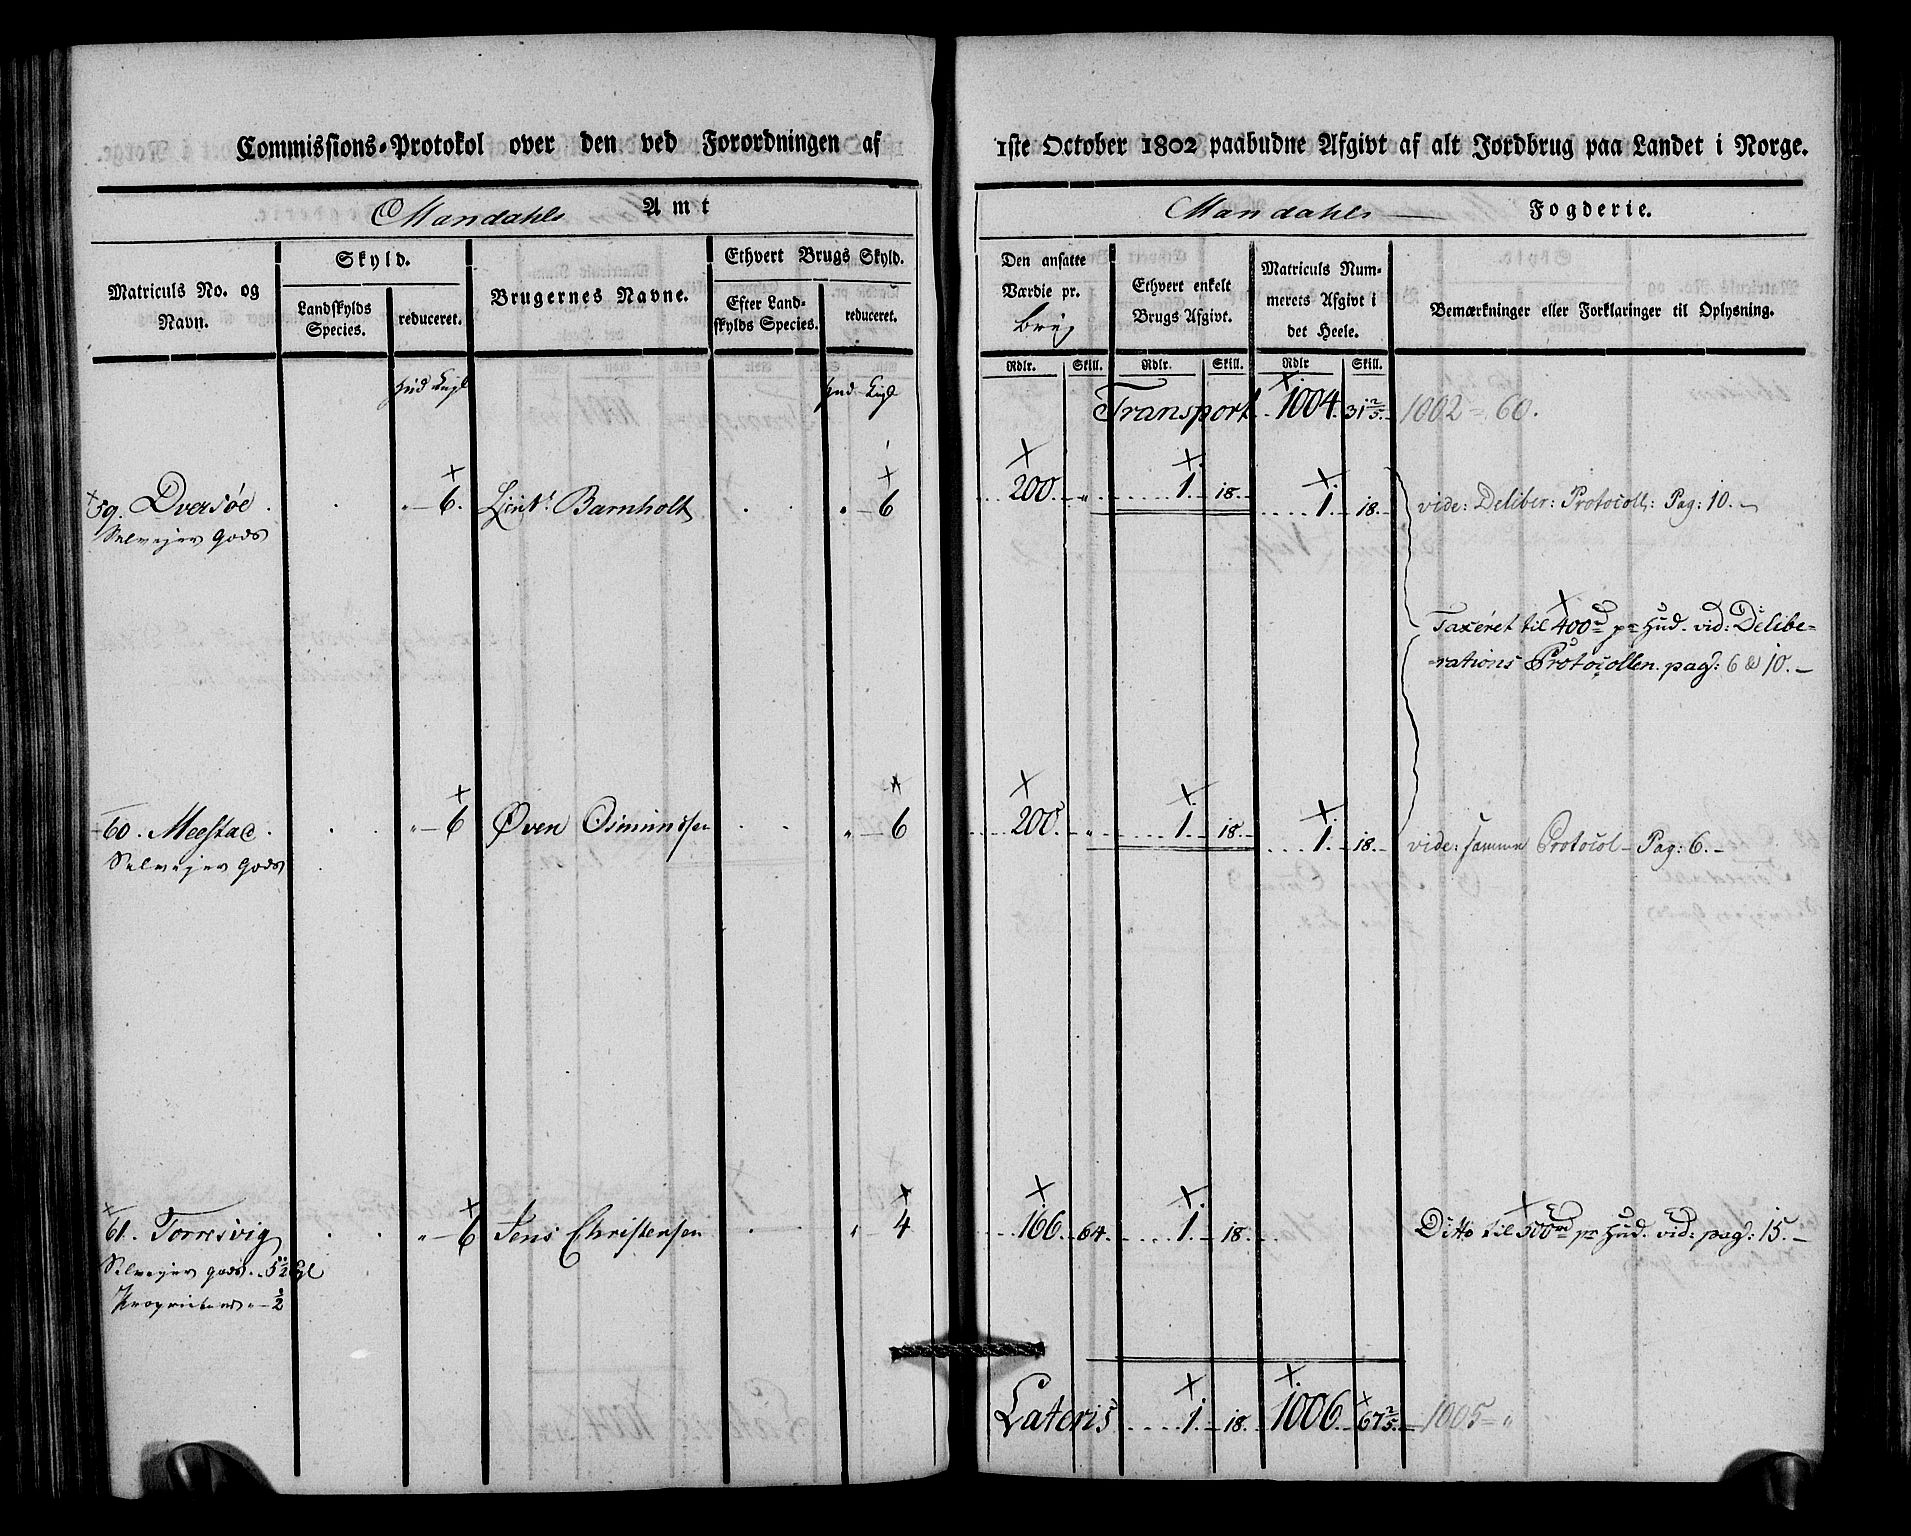 Commissions-Protokol over den ved Forordningen af 1ste October 1802 paabudne Afgivt af alt Jordbrug paa Landet i Norge.
Mandahls Amt
Mandahls Fogderie.
Matriculs No. og Navn.
Skyld.
Landskylds Species.
reduceret.
Brugernes Navne.
Ethvert Brugs Skyld.
Efter Landskylds Species.
reduceret.
Den ansatte Værdie pr. Brug
Ethvert enkelte Brugs Afgivt.
Matriculs Nummerets Afgivt i det Heele.
Bemærkninger eller Forklaringer til Oplysning.
Rdlr. Skill. Rdlr. Skill. Rdlr Skill.
Hud Engl Hud Engl
Transport 1004. 31 2/5 1002 = 60.
59. Dversøe „ 6. Barnholt „ 6 200. „ 1. 18. 1. 18. vide: Deliber: Protocoll: Pag: 10.
Selvejer Gods
Taxeret til 400rd pr Hud. vid: Delibe-
-rations Protocollen. pag: 6 & 10.
60. Meestad „ 6 Øven Osmundsen „ 6 200. „ 1. 18. 1. 18. vide: samme Protocol Pag: 6.
Selvejer Gods
61. Torresvig „ 6 Jens Christensen „ 4 166. 64. 1. 18. Ditto til 500rd pr Hud. vid: pag: 15.
Selvejer gods 5 1/2 Egl
„ 1/2
Lateris 1. 18. 1006. 67 2/5 1005 = „